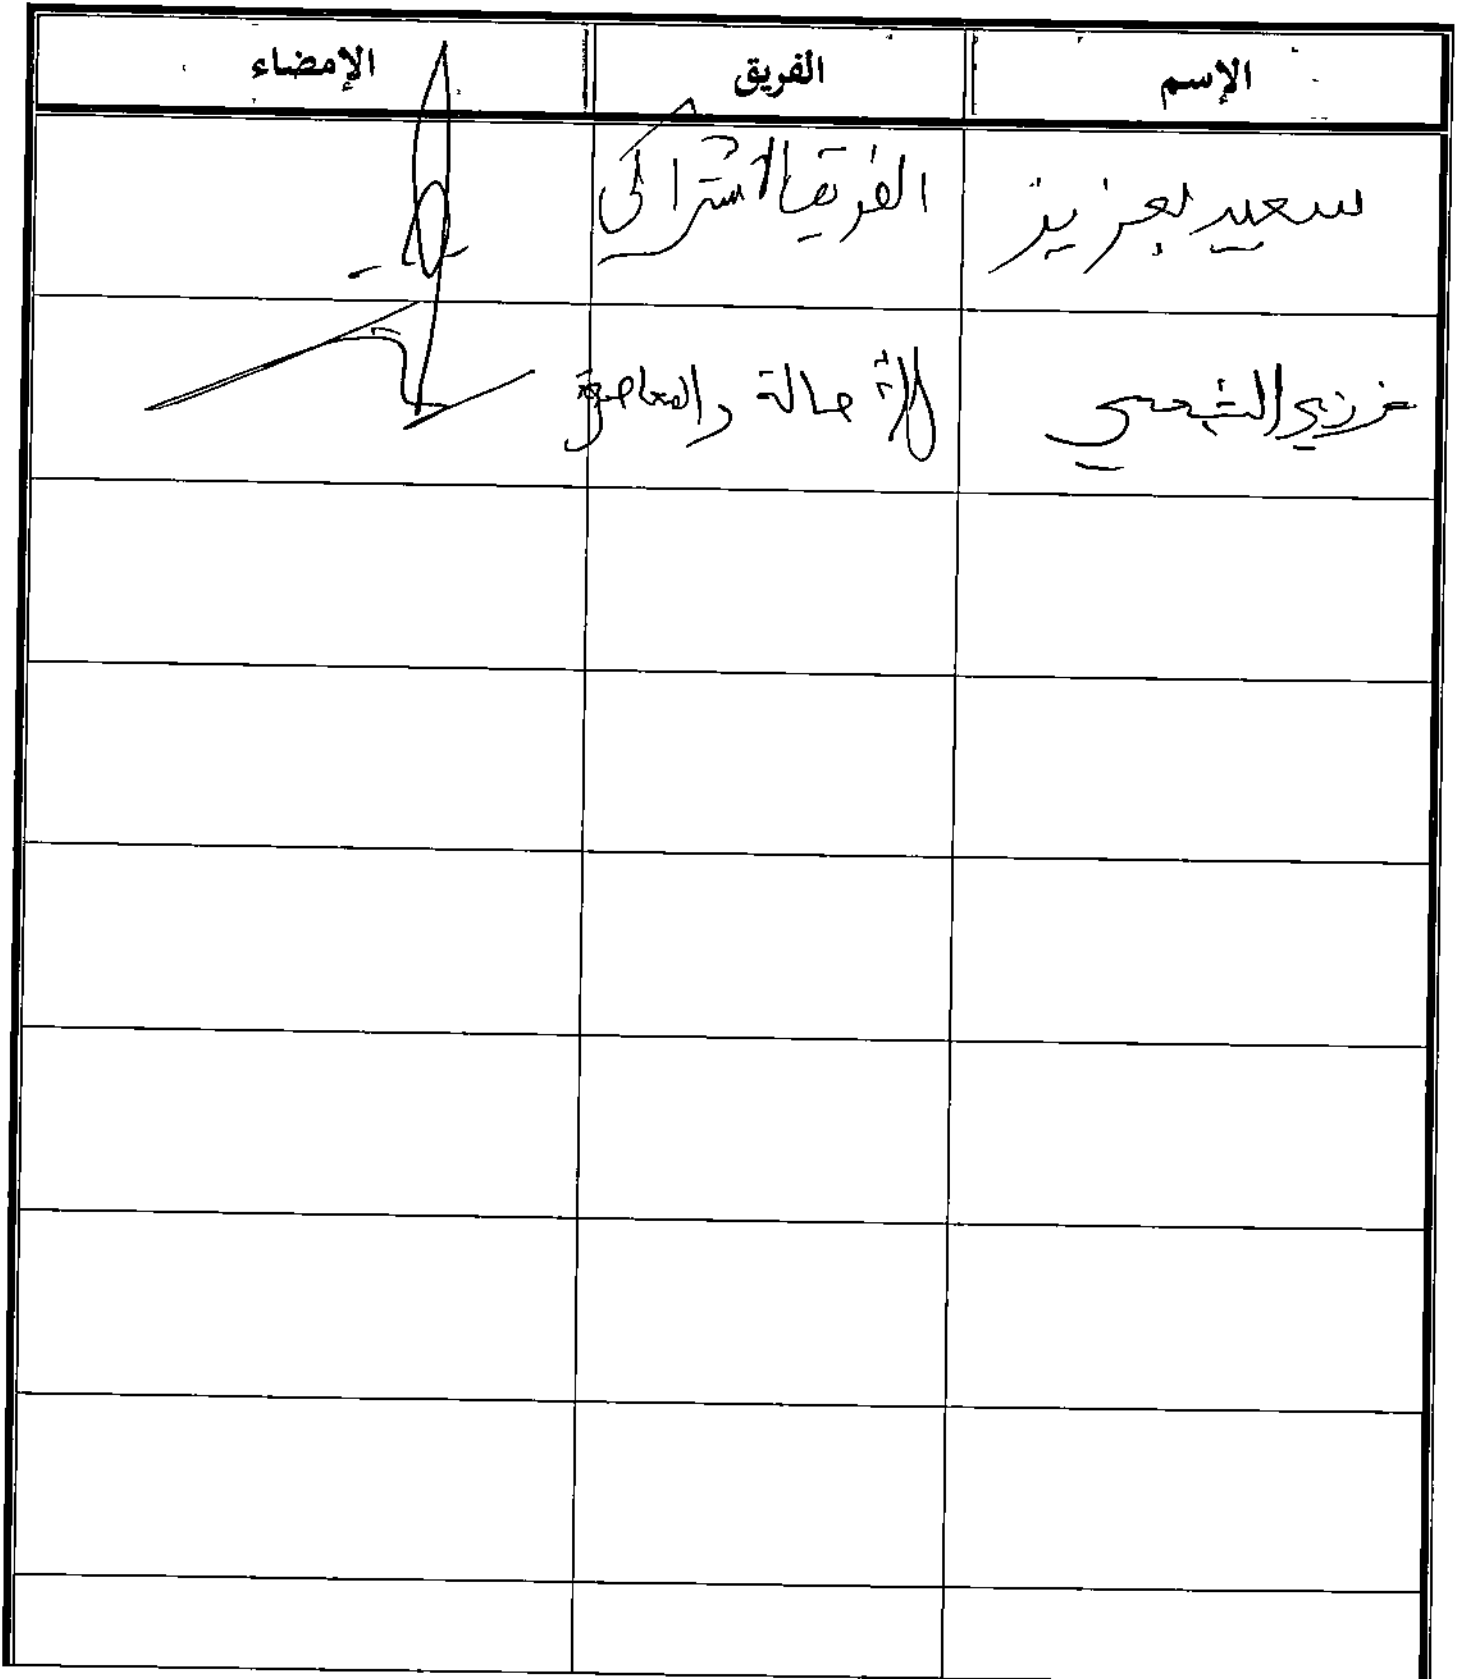 الإسم الفريق الإمضاء
سعيد بعزيز الفريق الاشتراكي
الأصالة والمعاصرة